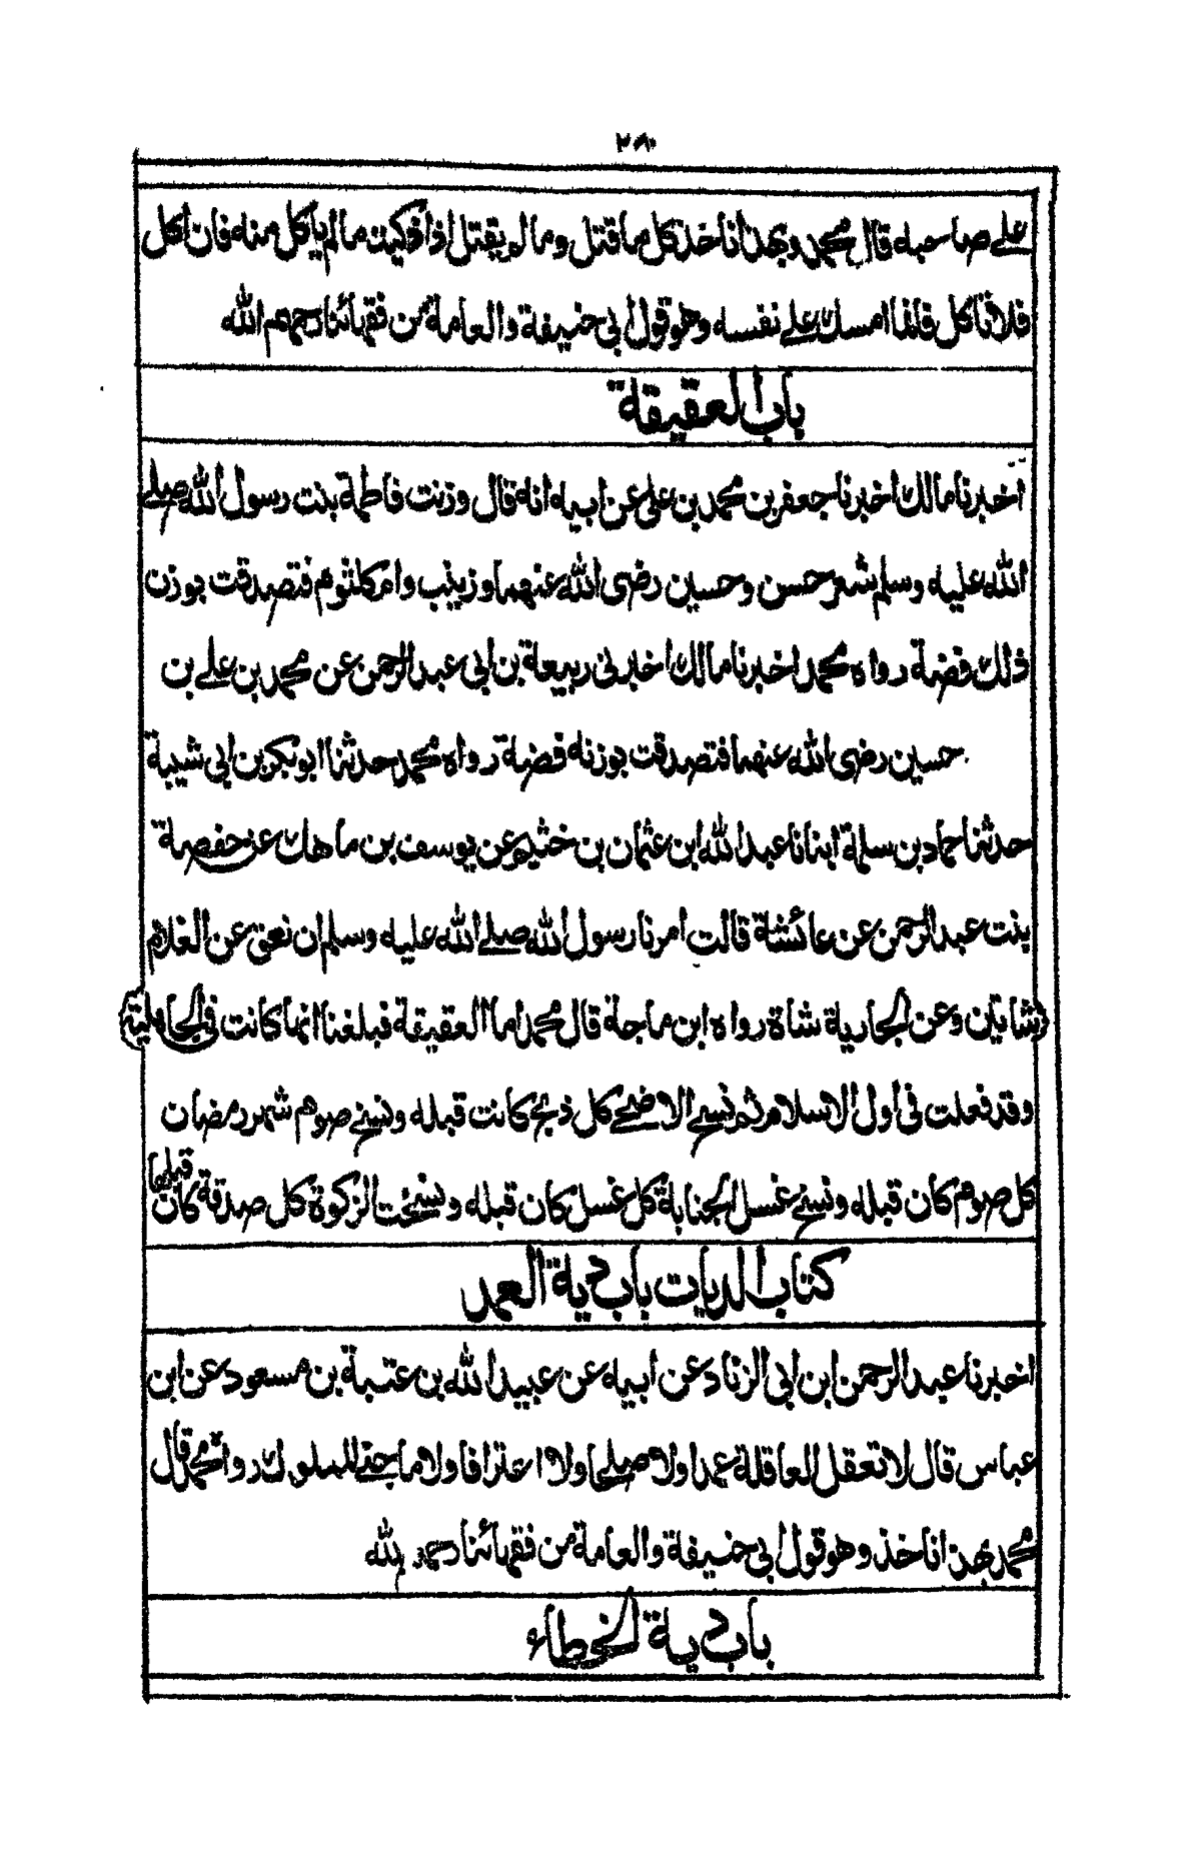 على صاحبه قال محمد وبهذا ناخذ كل ما قتل وما لم يقتل اذا ذكيته ما لم ياكل منه فان اكل
فلا تاكل فانما امسك على نفسه وهو قول ابي حنيفة والعامة من فقهائنا رحمهم الله
باب العقيقة
اخبرنا مالك اخبرنا جعفر بن محمد بن علي عن ابيه انه قال وزنت فاطمة بنت رسول الله صلى
الله عليه وسلم شعر حسن وحسين رضى الله عنهما وزينب وام كلثوم فتصدقت بوزن
ذلك فضة رواه محمد اخبرنا مالك اخبرني ربيعة بن ابي عبد الرحمن عن محمد بن على بن
حسين رضى الله عنهما فتصدقت بوزنه فضة رواه محمد حدثنا ابو بكر بن ابي شيبة
حدثنا حماد بن سلمة انبانا عبد الله ابن عثمان بن خثيم عن يوسف بن ماهك عن حفصة
بنت عبد الرحمن عن عائشة قالت امرنا رسول الله صلى الله عليه وسلم ان نعق عن الغلام
شاتين وعن الجارية شاة رواه ابن ماجة قال محمد اما العقيقة فبلغنا انها كانت في الجاهلية
وقد فعلت في اول الاسلام ثم نسخ الاضحى كل ذبح كانت قبله ونسخ صوم شهر رمضان
كل صوم كان قبله ونسخ غسل الجنابة كل غسل كان قبله ونسخت الزكوة كل صدقة كان قبلها
كتاب الديات باب دية العمد
اخبرنا عبد الرحمن ابن ابي الزناد عن ابيه عن عبيد الله بن عتبة بن مسعود عن ابن
عباس قال لا تعقل العاقلة عمدا ولا صلحا ولا اعترافا ولا ما جنى المملوك رواه محمد قال
محمد بهذا ناخذ وهو قول ابي حنيفة والعامة من فقهائنا رحمهم الله
باب دية الخطاء